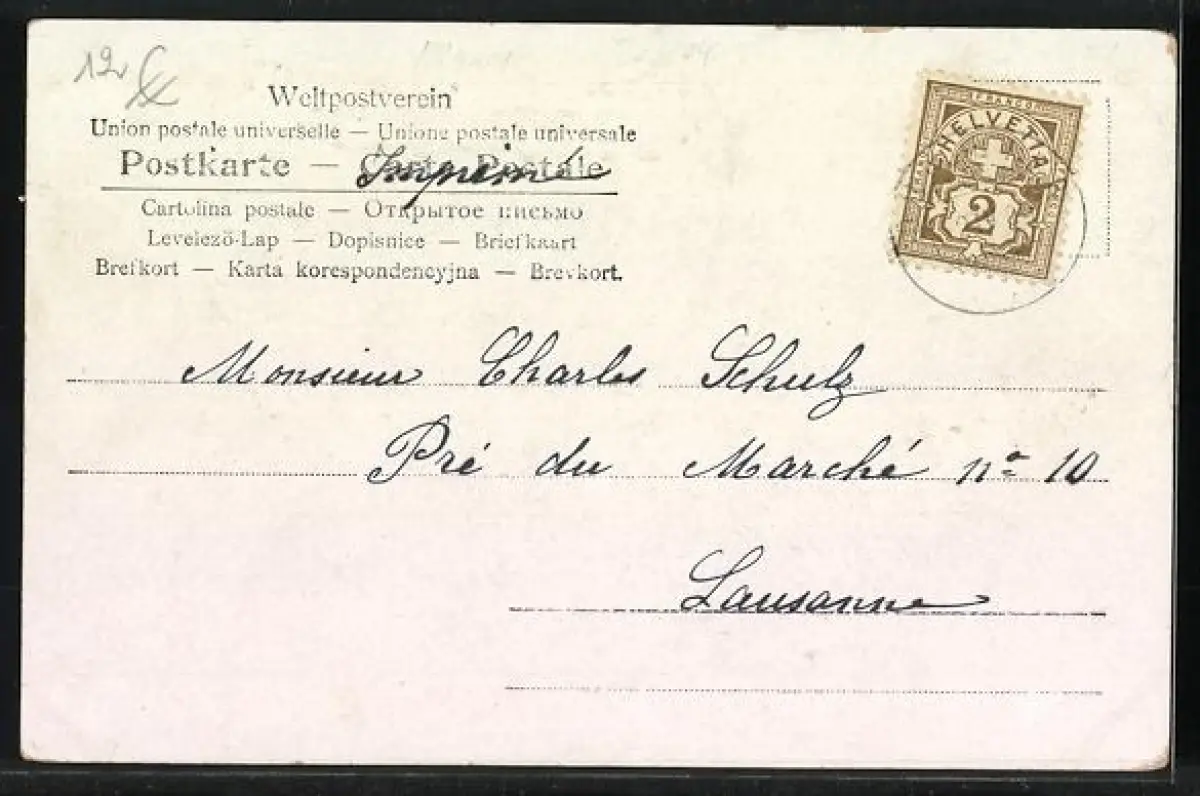 12
Weltpostverein
Union postale universelle — Unione postale universale
Postkarte — Carte Postale
Imprimé
Cartolina postale — Открытое письмо
Levelező-Lap — Dopisnice — Briefkaart
Brefkort — Karta korespondencyjna — Brevkort.
FRANCO
HELVETIA
2
Monsieur Charles Schulz
Pré du Marché no 10
Lausanne